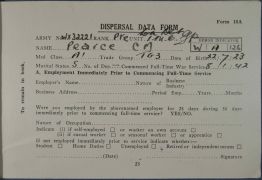 Form 18A
DISPERSAL DATA FORM
ARMY No. W/13221 RANK Pte
NAME Pearce CM W A 126
Med Class A1 Trade Group 1 G3 Date of Birth 22.7.23
Marital Status S No. of Dep. Commenced Full-Time War Service 8.1.42
A. Employment Immediately Prior to Commencing Full-Time Service
Employer's Name Nature of Business Industry
Business Address Period Emp. Years Months
Were you employed by the abovenamed employer for 28 days during 56 days immediately prior to commencing full-time service? YES/NO.
Nature of Occupation
Indicate (i) if self-employed or worker on own account
(ii) if casual worker or seasonal worker or apprentice
If not employed immediately prior to service indicate whether:—
Student Home Duties Unemployed Retired or independent means
(Date) Signature
23
To remain in book.